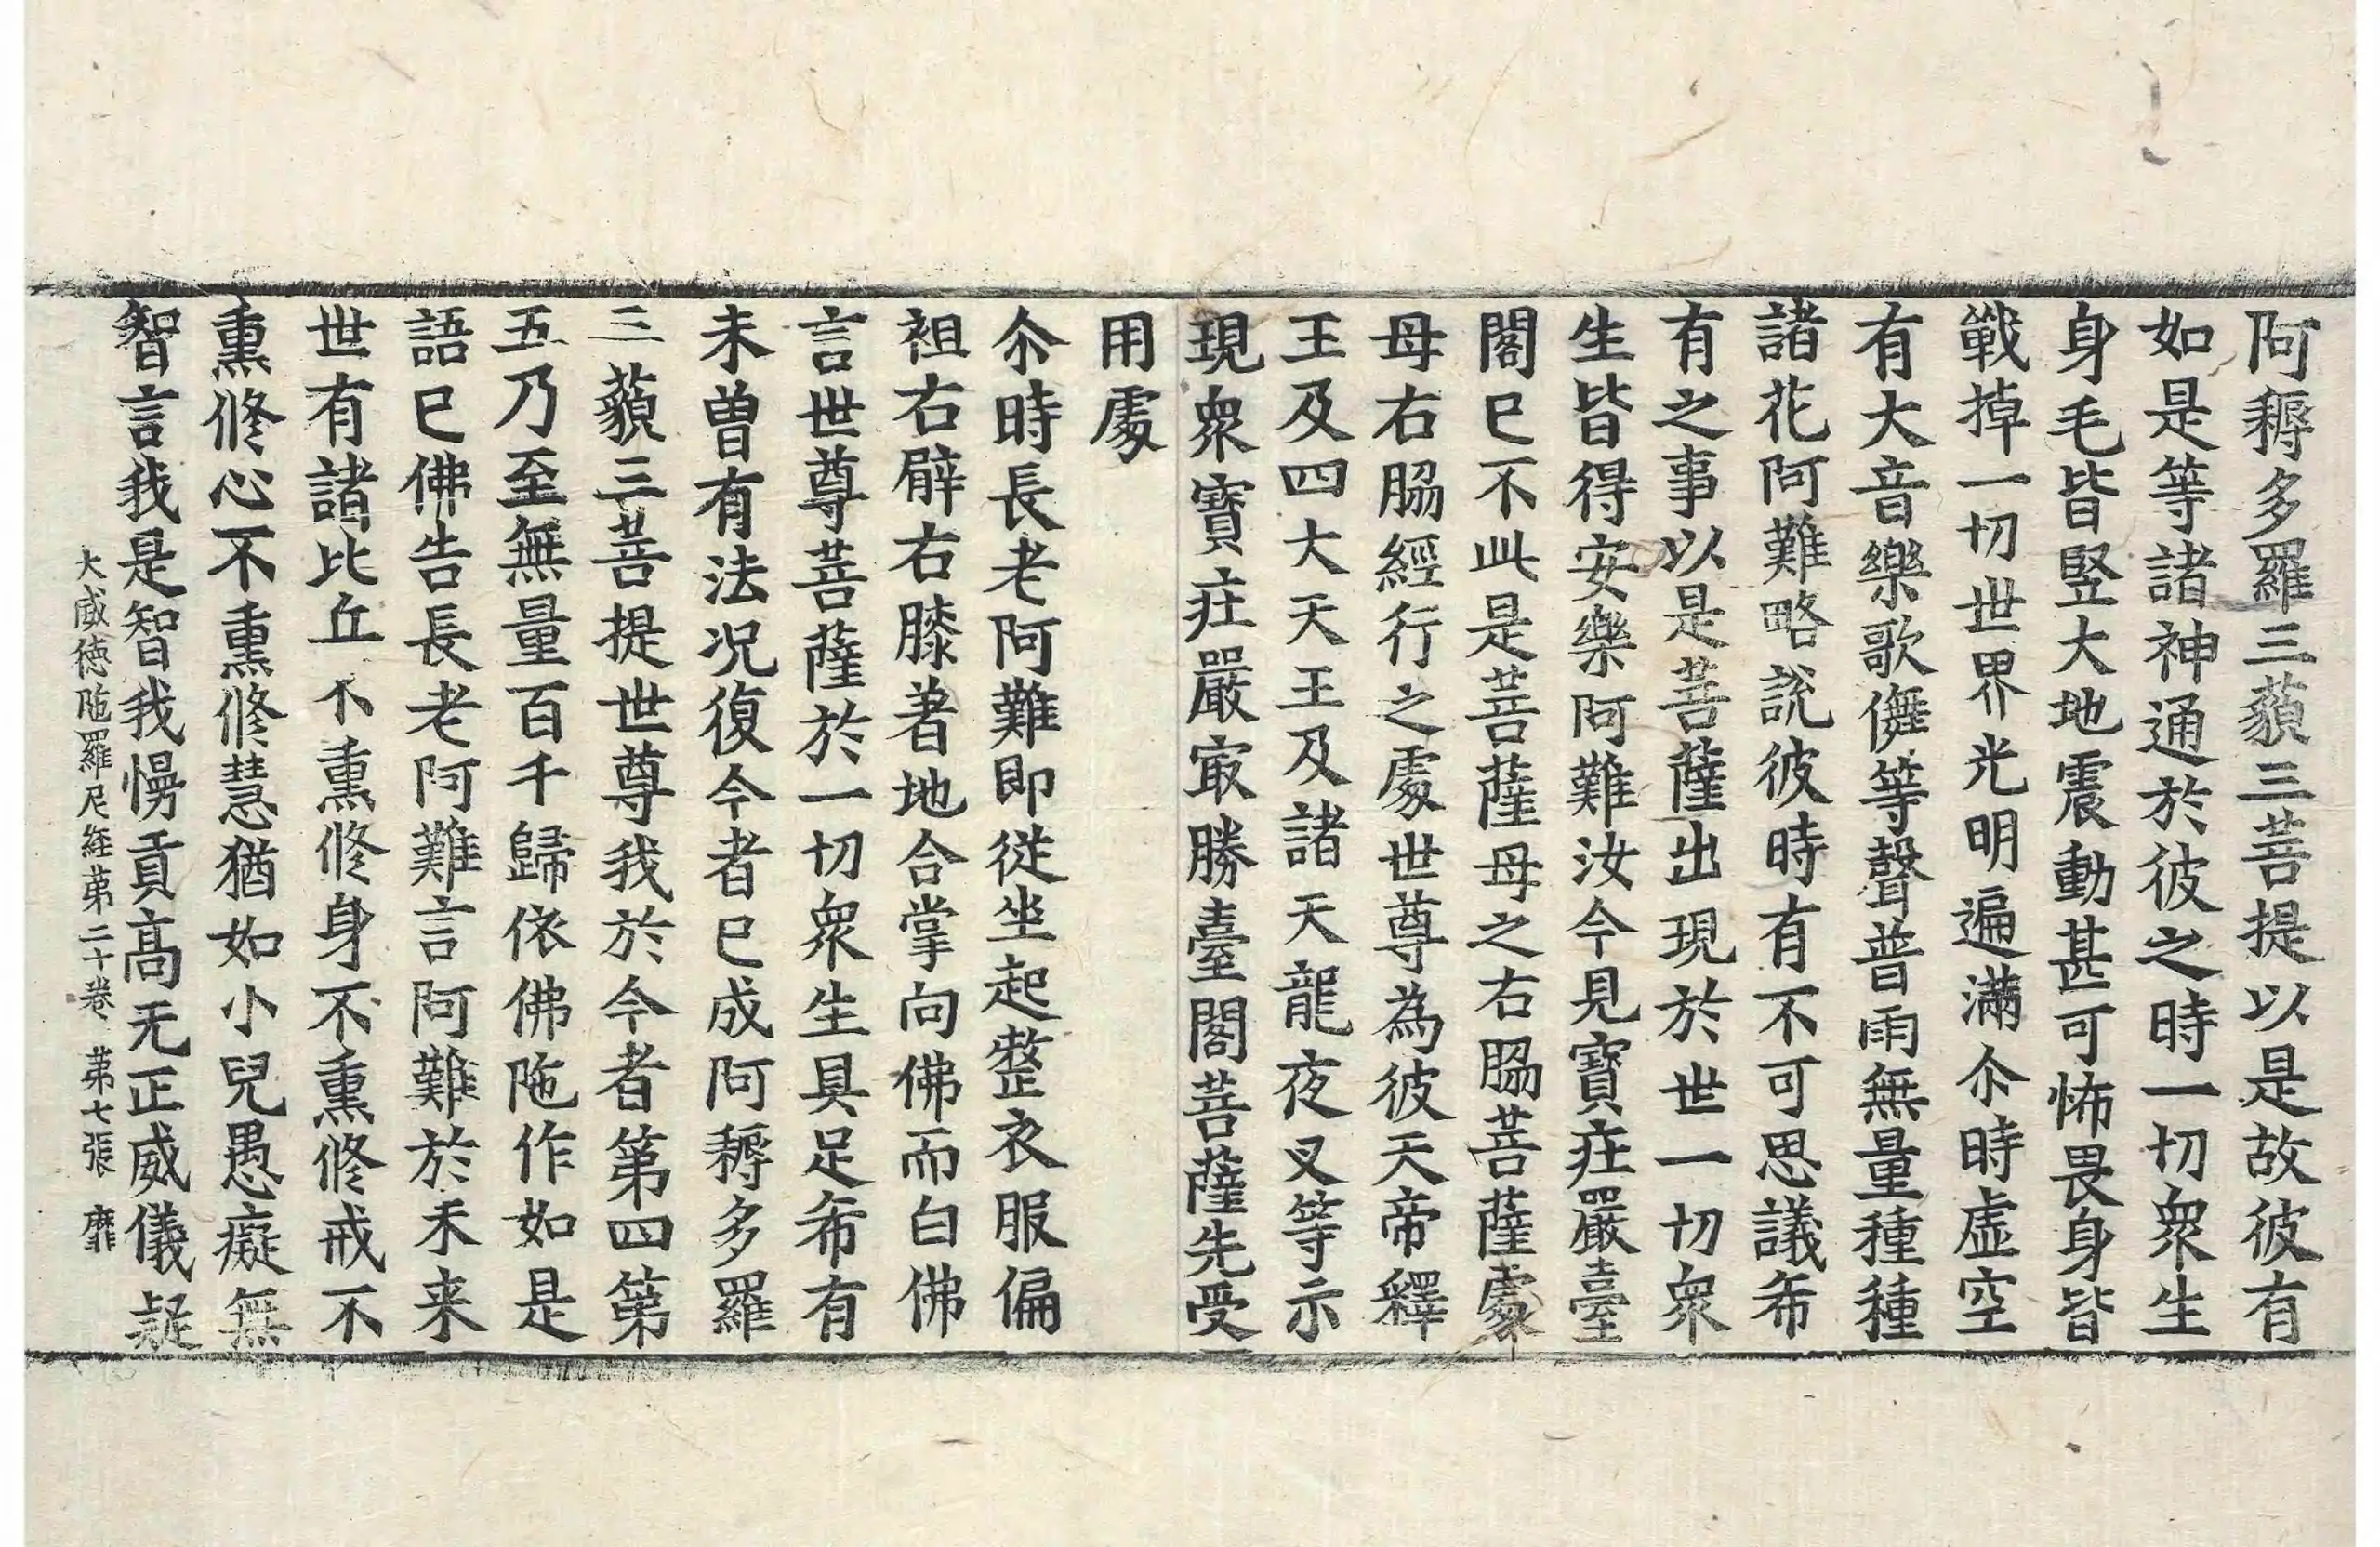 阿耨多羅三藐三菩提以是故彼有
如是等諸神通於彼之時一切衆生
身毛皆竪大地震動甚可怖畏身皆
戰掉一切世界光明遍滿尒時虛空
有大音樂歌儛等聲普雨無量種種
諸花阿難略說彼時有不可思議希
有之事以是菩薩出現於世一切衆
生皆得安樂阿難汝今見寶莊嚴臺
閣已不此是菩薩母之右脇菩薩處
母右脇經行之處世尊為彼天帝釋
王及四大天王及諸天龍夜叉等示
現衆寶莊嚴㝡勝臺閣菩薩先受
用處
尒時長老阿難即從坐起整衣服偏
袒右臂右膝著地合掌向佛而白佛
言世尊菩薩於一切衆生具足希有
未曾有法况復今者已成阿耨多羅
三藐三菩提世尊我於今者第四第
五乃至無量百千歸依佛陁作如是
語已佛告長老阿難言阿難於未来
世有諸比丘不熏修身不熏修戒不
熏修心不熏修慧猶如小兒愚癡無
智言我是智我慢貢高无正威儀疑
大威徳陁羅尼経苐二十卷 苐七張 靡